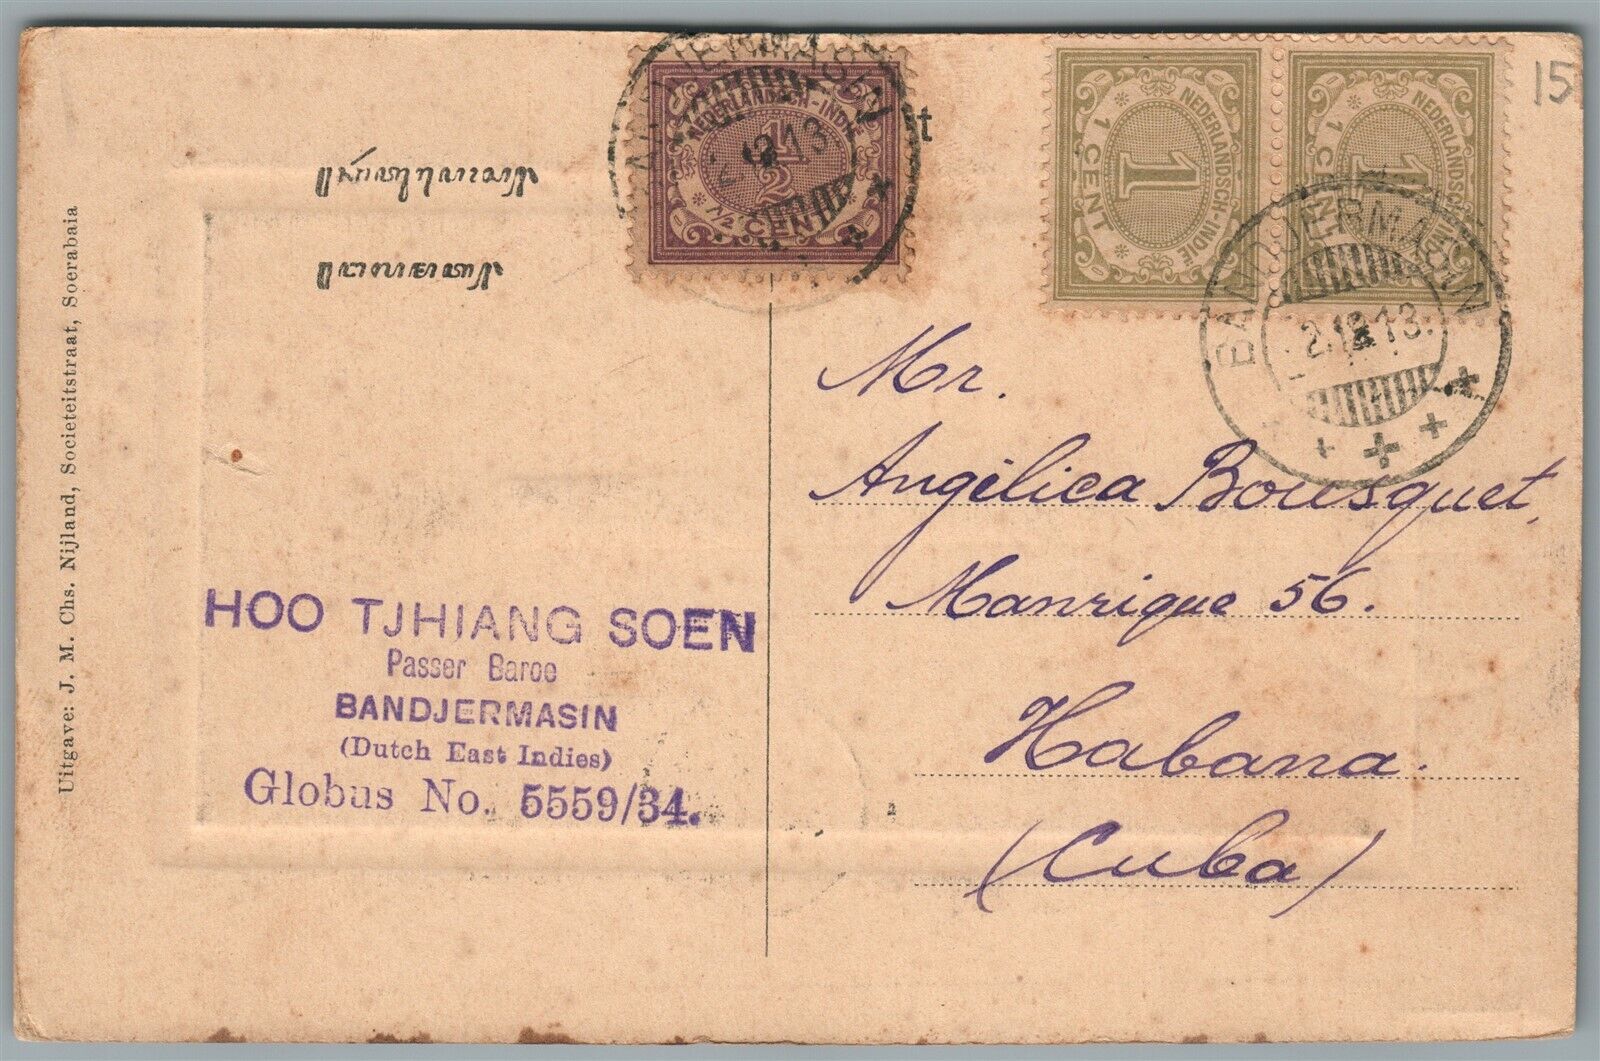 Uitgave: J. M. Chs. Nijland, Societeitstraat, Soerabaia
NEDERLANDSCH-INDIË
1/2
CENT
BANDJERMASIN
2.12.13.
t
NEDERLANDSCH-INDIË
1
1 CENT
NEDERLANDSCH-INDIË
1
1 CENT
BANDJERMASIN
2.12.13.
15
Mr.
Angélica Bousquet,
Manrique 56.
Habana.
(Cuba)
HOO TJHIANG SOEN
Passer Baroe
BANDJERMASIN
(Dutch East Indies)
Globus No. 5559/34.